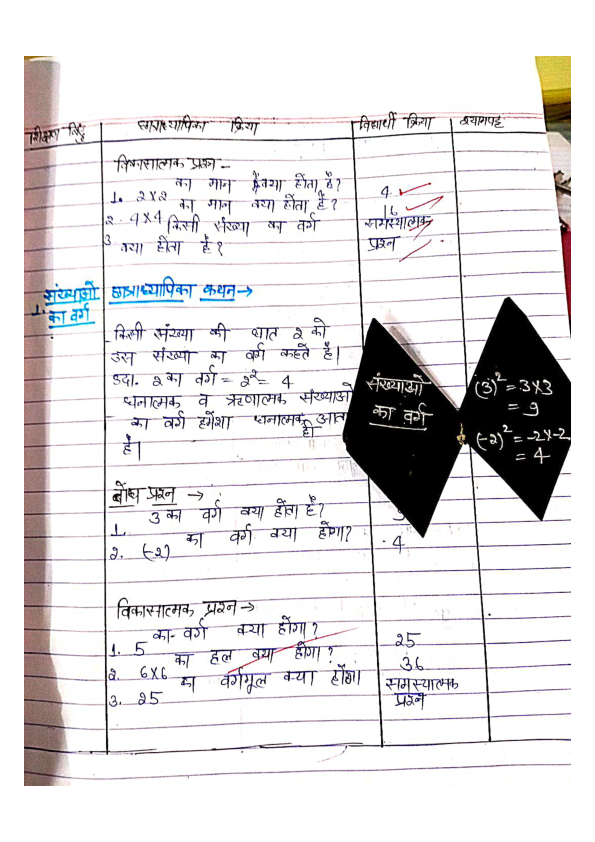 शिक्षण बिंदु छात्राध्यापिका क्रिया विद्यार्थी क्रिया श्यामपट्ट
विकासात्मक प्रश्न -
1. 2x2 का मान क्या होता है? 4
2. 4x4 का मान क्या होता है? 16
3. किसी संख्या का वर्ग समस्यात्मक
क्या होता है? प्रश्न
संख्याओ छात्राध्यापिका कथन →
1. का वर्ग
किसी संख्या की घात 2 को
उस संख्या का वर्ग कहते है।
उदा. 2 का वर्ग = 2² = 4
धनात्मक व ऋणात्मक संख्याओ
का वर्ग हमेशा धनात्मक ही आता
है।
संख्याओ
का वर्ग
(3)² = 3x3
= 9
(-2)² = -2x-2
= 4
बोध प्रश्न →
1. 3 का वर्ग क्या होता है? 9
2. (-2) का वर्ग क्या होगा? 4
विकासात्मक प्रश्न →
1. 5 का वर्ग क्या होगा? 25
2. 6x6 का हल क्या होगा? 36
3. 25 का वर्गमूल क्या होगा समस्यात्मक
प्रश्न